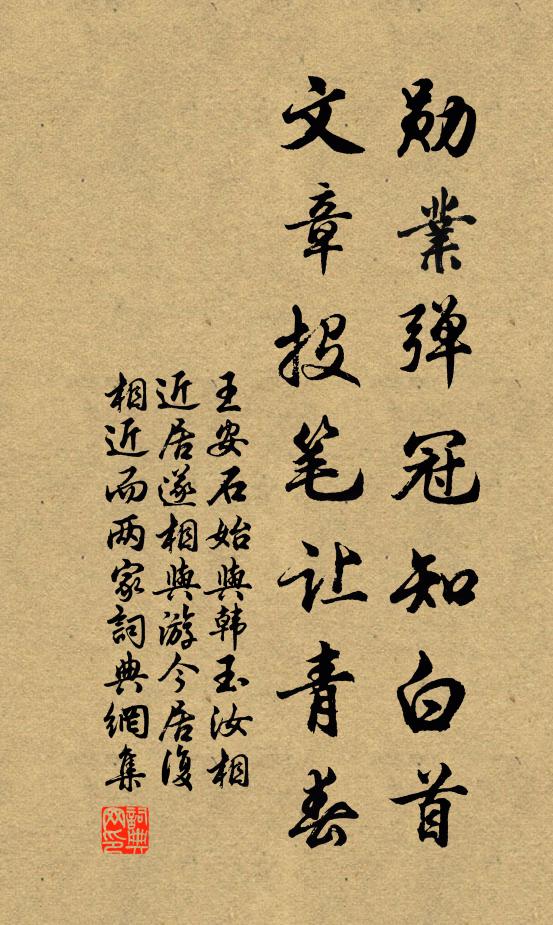 勋業弹冠知白首
文章投笔让青春
王安石始與韩玉汝相
近居遂相與游今居復
相近而两家詞典網集
詞典网印